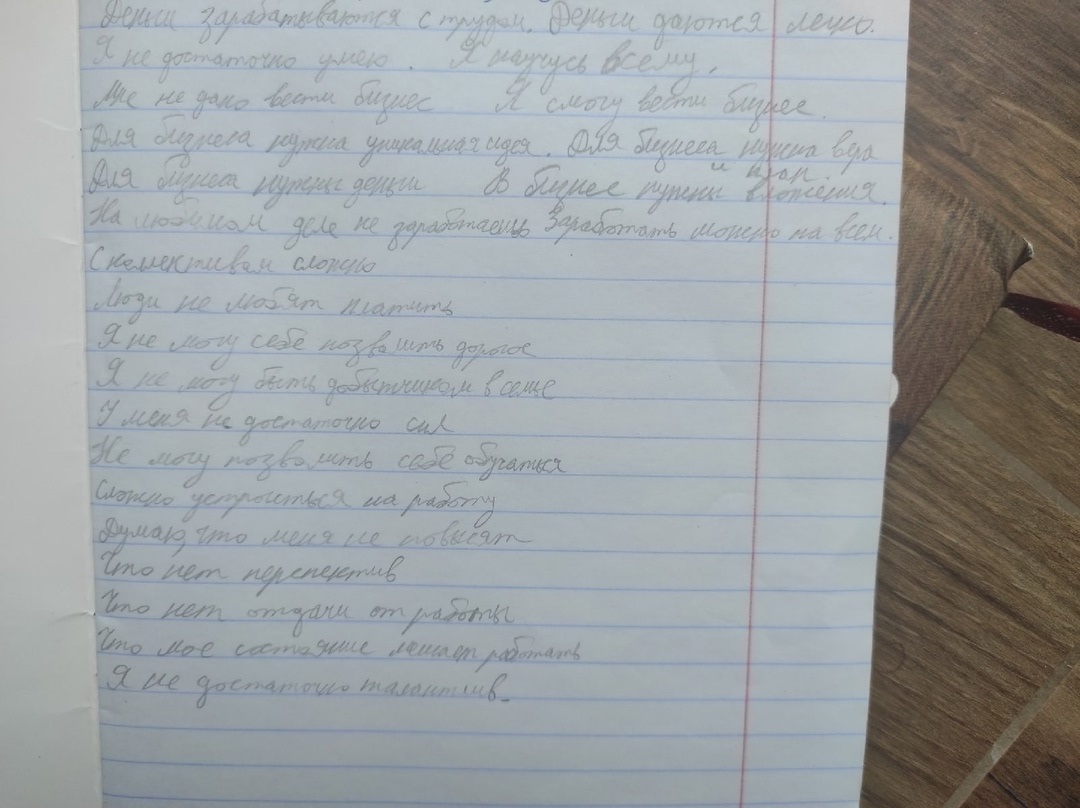 Деньги зарабатываются с трудом. Деньги даются легко.
Я не достаточно умею. Я научусь всему.
Мне не дано вести бизнес Я смогу вести бизнес.
Для бизнеса нужна уникальная идея. Для бизнеса нужна вера
и план.
Для бизнеса нужны деньги В бизнес нужны вложения.
На любимом деле не заработаешь Заработать можно на всем.
С коллективам сложно
Люди не любят платить
Я не могу себе позволить дорогое
Я не могу быть добытчиком в семье
У меня не достаточно сил
Не могу позволить себе обучаться
Сложно устроиться на работу
Думаю, что меня не повысят
Что нет перспектив
Что нет отдачи от работы
Что мое состояние мешает работать
Я не достаточно талантлив.